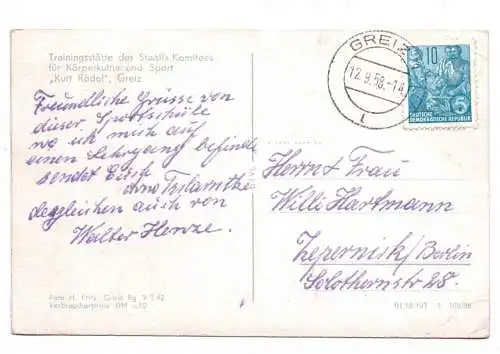 Trainingsstätte des Staatl. Komitees
für Körperkultur und Sport
„Kurt Rödel", Greiz
Freundliche Grüsse von
dieser Sportschule
wo ich mich auf
einen Lehrgang befinde
sendet Euch
Arno
desgleichen auch von
Walter Henze.
Foto H. Fritz, Greiz Bg V 1 42
Verbraucherpreis DM
GREIZ
12.9.58
10
DEUTSCHE
DEMOKRATISCHE REPUBLIK
Herrn & Frau
Willi Hartmann
Zepernick/Berlin
Solothurnstr 28.